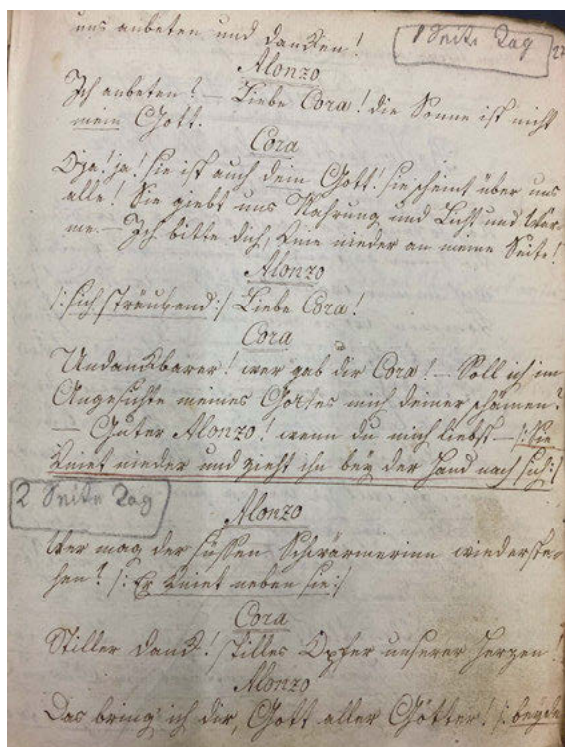 uns anbeten und danken!
1 Seite Tag
Alonzo
Ich anbeten? — Liebe Cora! die Sonne ist nicht
mein Gott.
Cora
O ja! ja! sie ist auch dein Gott! sie scheint über uns
alle! Sie giebt uns Nahrung und Licht und Wär-
me. — Ich bitte dich, knie nieder an meine Seite!
Alonzo
/: sich sträubend :/ Liebe Cora!
Cora
Undankbarer! wer gab dir Cora! — Soll ich im
Angesichte meines Gottes mich deiner schämen?
— Guter Alonzo! wenn du mich liebst — /: Sie
kniet nieder und zieht ihn bey der Hand nach sich :/
2 Seite Tag
Alonzo
Wer mag der süssen Schwärmerinn wiederste-
hen? /: Er kniet neben sie :/
Cora
Stiller Dank! stilles Opfer unserer Herzen!
Alonzo
Das bring ich dir, Gott aller Götter! /: beyde